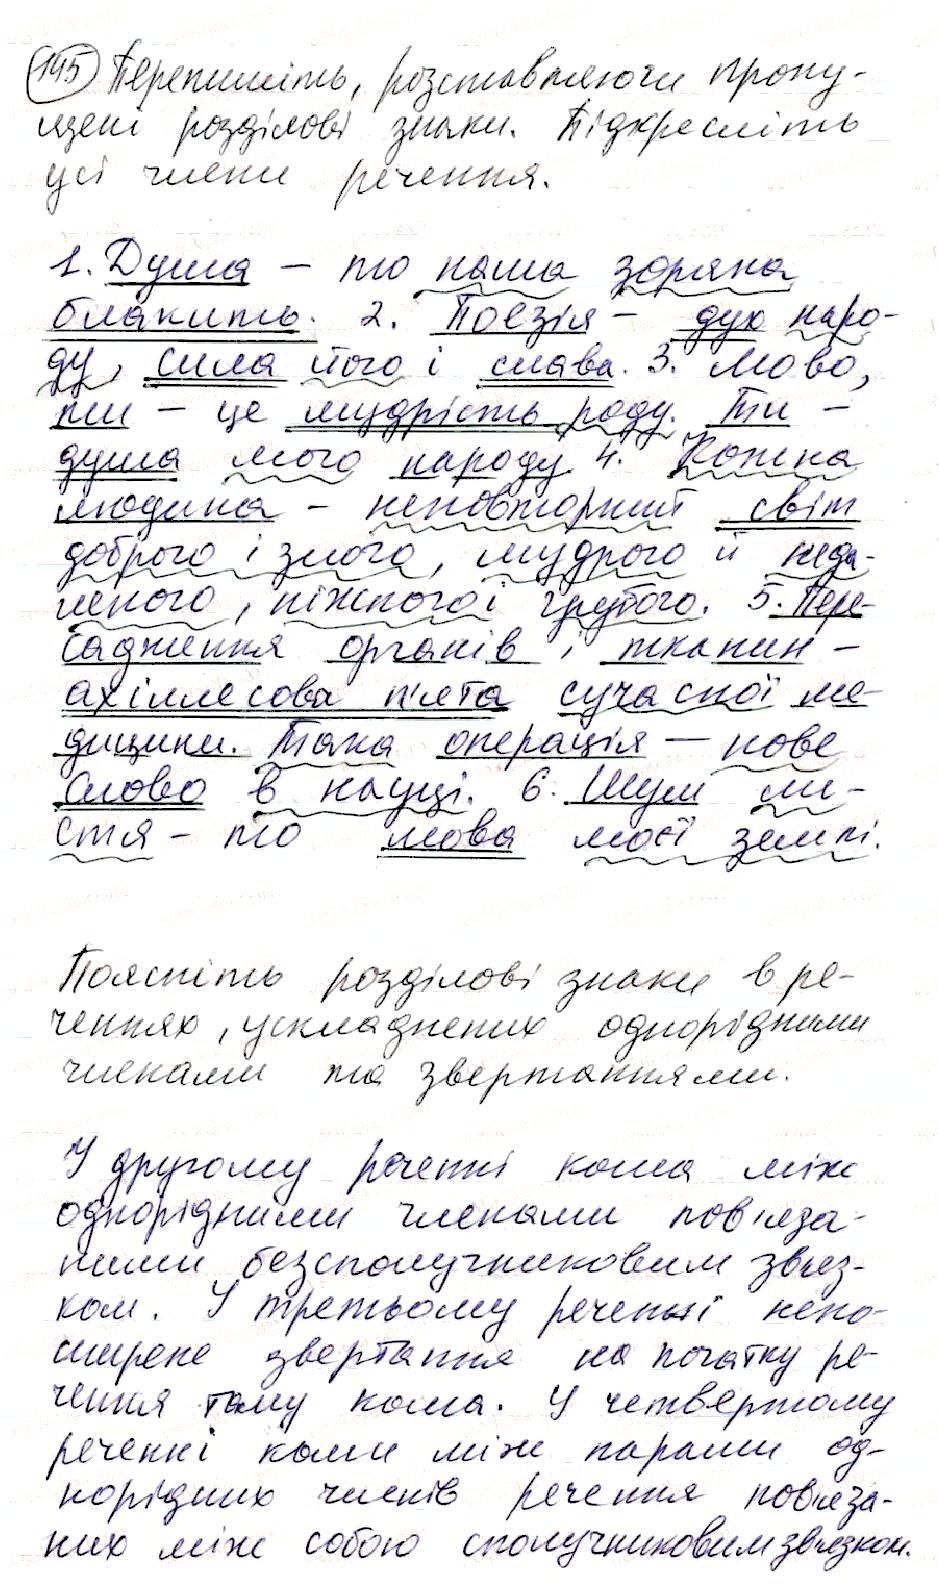 195 Перепишіть, розставляючи пропу-
щені розділові знаки. Підкресліть
усі члени речення.
1. Душа – то наша зоряна
блакить. 2. Поезія – дух наро-
ду, сила його і слава. 3. Мово,
ти – це мудрість роду. Ти –
душа мого народу. 4. Кожна
людина – неповторний світ
доброго і злого, мудрого й неда-
лекого, ніжного і грубого. 5. Пере-
садження органів і тканин –
ахіллесова п'ята сучасної ме-
дицини. Така операція – нове
слово в науці. 6. Шум ли-
стя – то мова моєї землі.
Поясніть розділові знаки в ре-
ченнях, ускладнених однорідними
членами та звертаннями.
У другому реченні кома між
однорідними членами пов'яза-
ними безсполучниковим звяз-
ком. У третьому реченні непо-
ширене звертання на початку ре-
чення тому кома. У четвертому
реченні коми між парами од-
норідних членів речення пов'яза-
них між собою сполучниковим звязком.